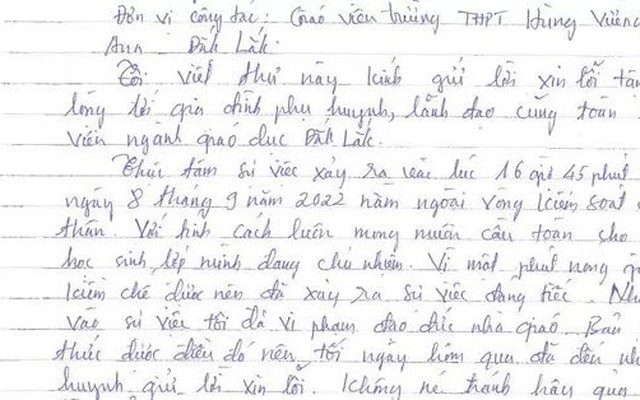 Đơn vị công tác: Giáo viên trường THPT Hùng Vương
Ana Đăk Lăk.
Tôi viết thư này kính gửi lời xin lỗi tận
lòng tới gia đình phụ huynh, lãnh đạo cùng toàn
viên ngành giáo dục Đăk Lăk.
Thức tâm sự việc xảy ra vào lúc 16 giờ 45 phút
ngày 8 tháng 9 năm 2022 nằm ngoài vòng kiểm soát
thân. Với tính cách luôn mong muốn cầu toàn cho
học sinh lớp mình đang chủ nhiệm. Vì một phút nóng
kiềm chế được nên đã xảy ra sự việc đáng tiếc.
vào sự việc tôi đã vi phạm đạo đức nhà giáo. Bản
thức được điều đó nên tối ngày hôm qua đã đến
huynh gửi lời xin lỗi. Không né tránh hay qua